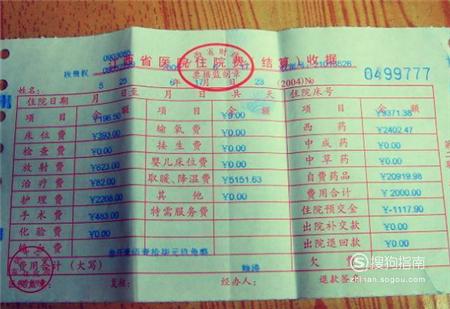 江西省医院住院费 结算 收据
票据监制章
(2004)№ 0499777
姓名:
5 25 6 17 23
住院日期 月 日至 月 日共 天 住院床号
项目 ¥196.50 项目 金额 ¥9371.38
床位费 ¥393.00 输氧费 ¥0.00 西药 ¥2402.47
检查费 ¥0.00 接生费 ¥0.00 中成药 ¥0.00
放射费 ¥623.00 婴儿床位费 ¥0.00 中草药 ¥0.00
治疗费 ¥82.00 取暖、降温费 ¥5151.63 自费药品 ¥20919.98
护理费 ¥2208.00 其他 ¥0.00 费用合计 ¥2000.00
手术费 ¥483.00 特需服务费 住院预交金 ¥-1117.90
化验费 ¥0.00 出院补交款 ¥0.00
输血费 ¥0.00 出院退回款 ¥0.00
费用合计(大写) 欠费
复核: 经办人: 退款签
搜狗指南
zhinan.sogou.com